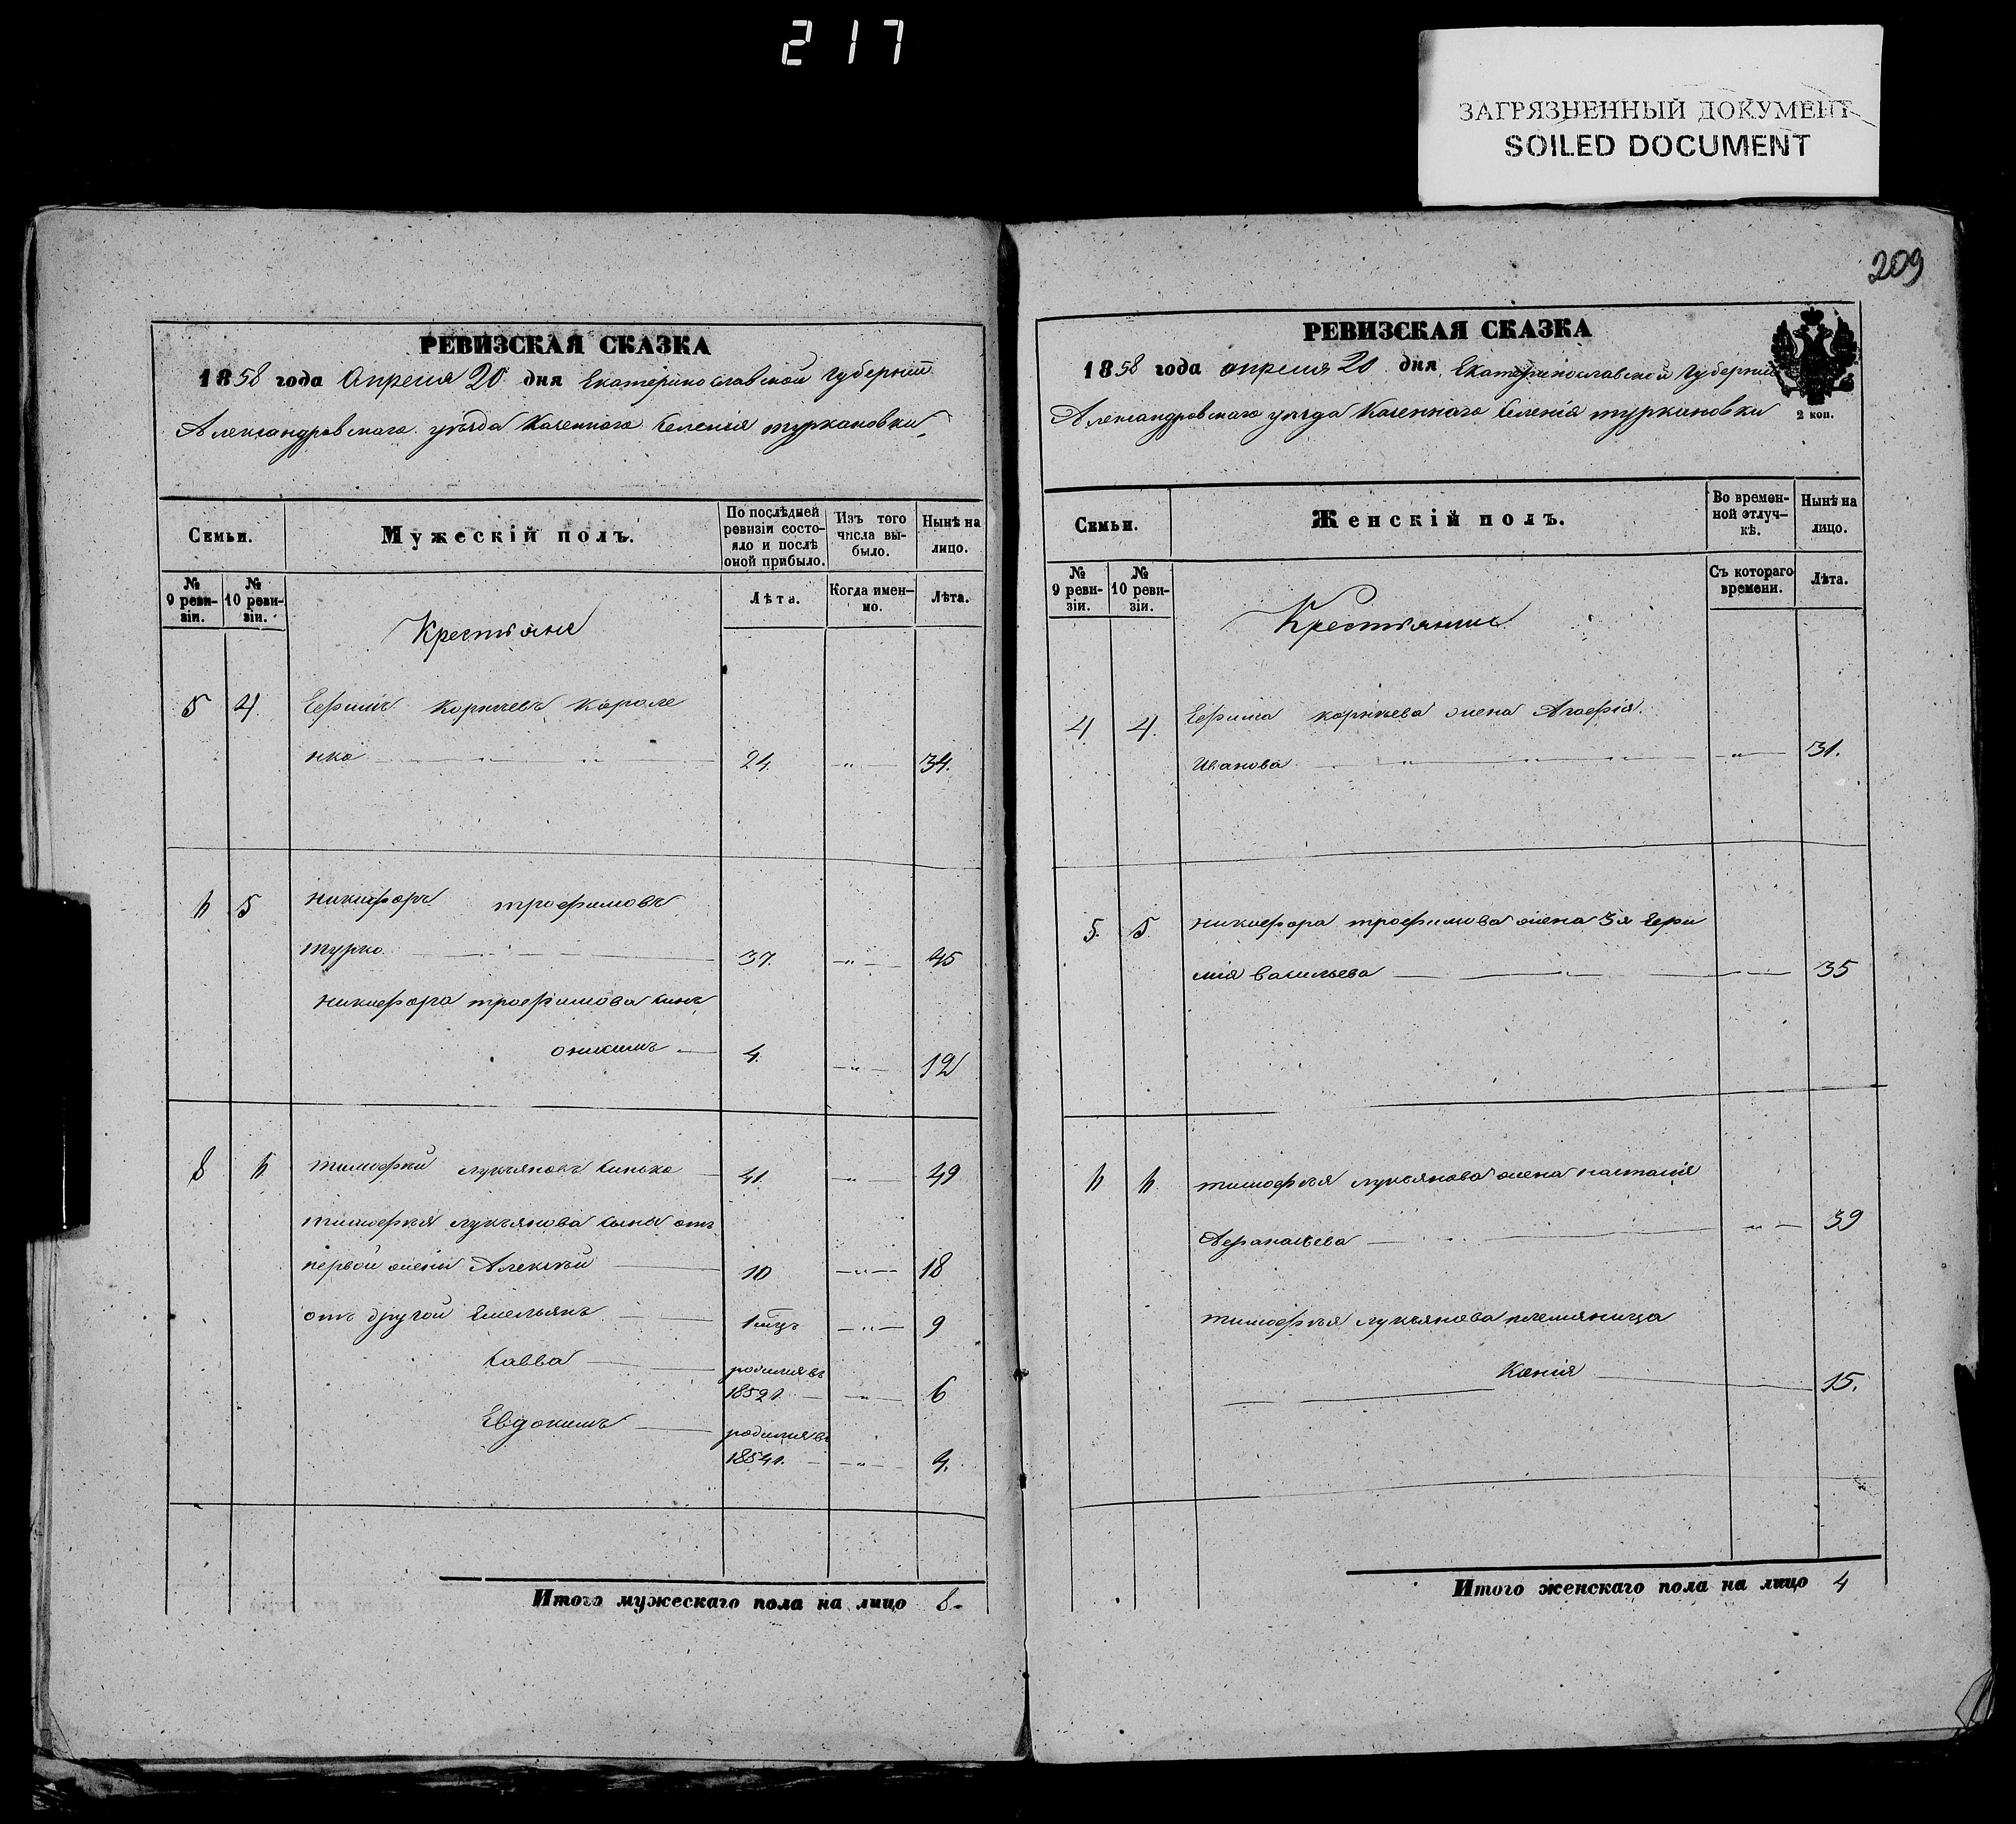 217
ЗАГРЯЗНЕННЫЙ ДОКУМЕНТ
SOILED DOCUMENT
РЕВИЗСКАЯ СКАЗКА
1858 года Апреля 20 дня Екатеринославской Губерніи
Александровскаго уѣзда Казеннаго Селенія туркановки
Семьи.
Мужескій полъ.
По послѣдней ревизіи состояло и послѣ оной прибыло.
Изъ того числа выбыло.
Нынѣ на лицо.
№ 9 ревизіи.
№ 10 ревизіи.
Лѣта.
Когда именно.
Лѣта.
Крестьяне
5 4. Ефимъ Корнѣевъ Короле
нко 24. — " — 34.
6 5 никифоръ трофимовъ
турко 37. — " — 45
никифора трофимова сынъ
онисимъ 4. — " — 12
8 6 тимофѣй лукьяновъ Синько 41. — " — 49
тимофѣя лукьянова сыны отъ
первой жены Алексѣй 10 — " — 18
отъ другой Емельянъ 1 мцъ — " — 9
Савва родился въ
1852 г. — " — 6
Евдокимъ родился въ
1854 г. — " — 4.
Итого мужескаго пола на лицо 8
209
РЕВИЗСКАЯ СКАЗКА
1858 года апреля 20 дня Екатеринославской Губерніи
Александровскаго уѣзда Казеннаго Селенія туркановки
2 коп.
Семьи.
Женскій полъ.
Во временной отлучкѣ.
Нынѣ на лицо.
№ 9 ревизіи.
№ 10 ревизіи.
Съ котораго времени.
Лѣта.
Крестьянки
4. 4. Ефима корнѣева жена Агафія
Иванова — " — 31.
5. 5. никифора трофимова жена 3я Ефи
мія васильева — " — 35
6 6 тимофѣя лукьянова жена настасія
Афанасьева — " — 39
тимофѣя лукьянова племяница
Ксенія 15.
Итого женскаго пола на лицо 4